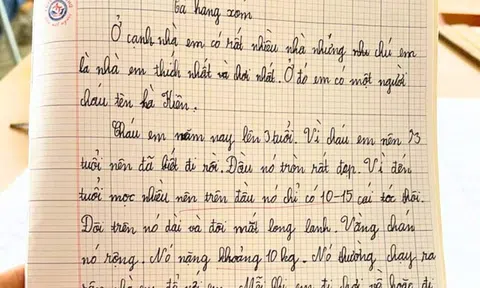 Tả hàng xóm
Ở cạnh nhà em có rất nhiều nhà nhưng nhà chú em
là nhà em thích nhất và chơi nhất. Ở đó em có một người
cháu tên hà Hiên.
Cháu em năm nay lên 3 tuổi. Vì cháu em nên 3
tuổi nên đã biết đi rồi. Đầu nó tròn rất đẹp. Vì đến
tuổi mọc nhiều nên trên đầu nó chỉ có 10-15 cái tóc thôi.
Dôi trên nó dài và đôi mắt long lanh. Vàng chán
nó rộng. Nó nặng khoảng 10 kg. Nó thường chạy ra